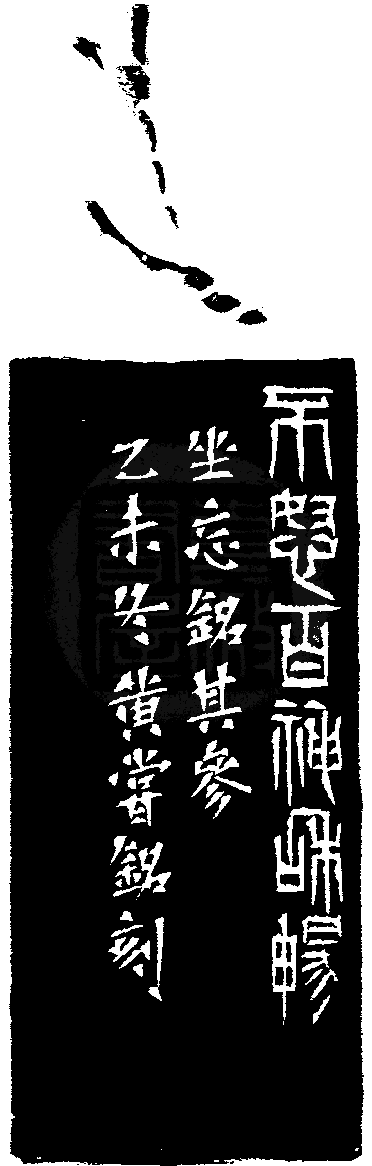 不怒百神和暢
坐忘銘其參
乙未冬黃嘗銘刻